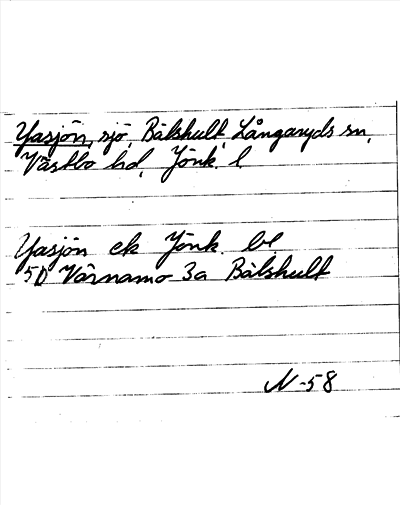 Yasjön, sjö, Bälshult, Långaryds sn,
Västbo hd, Jönk. l
Yasjön ek Jönk. bl
5D Värnamo 3a Bälshult
N -58